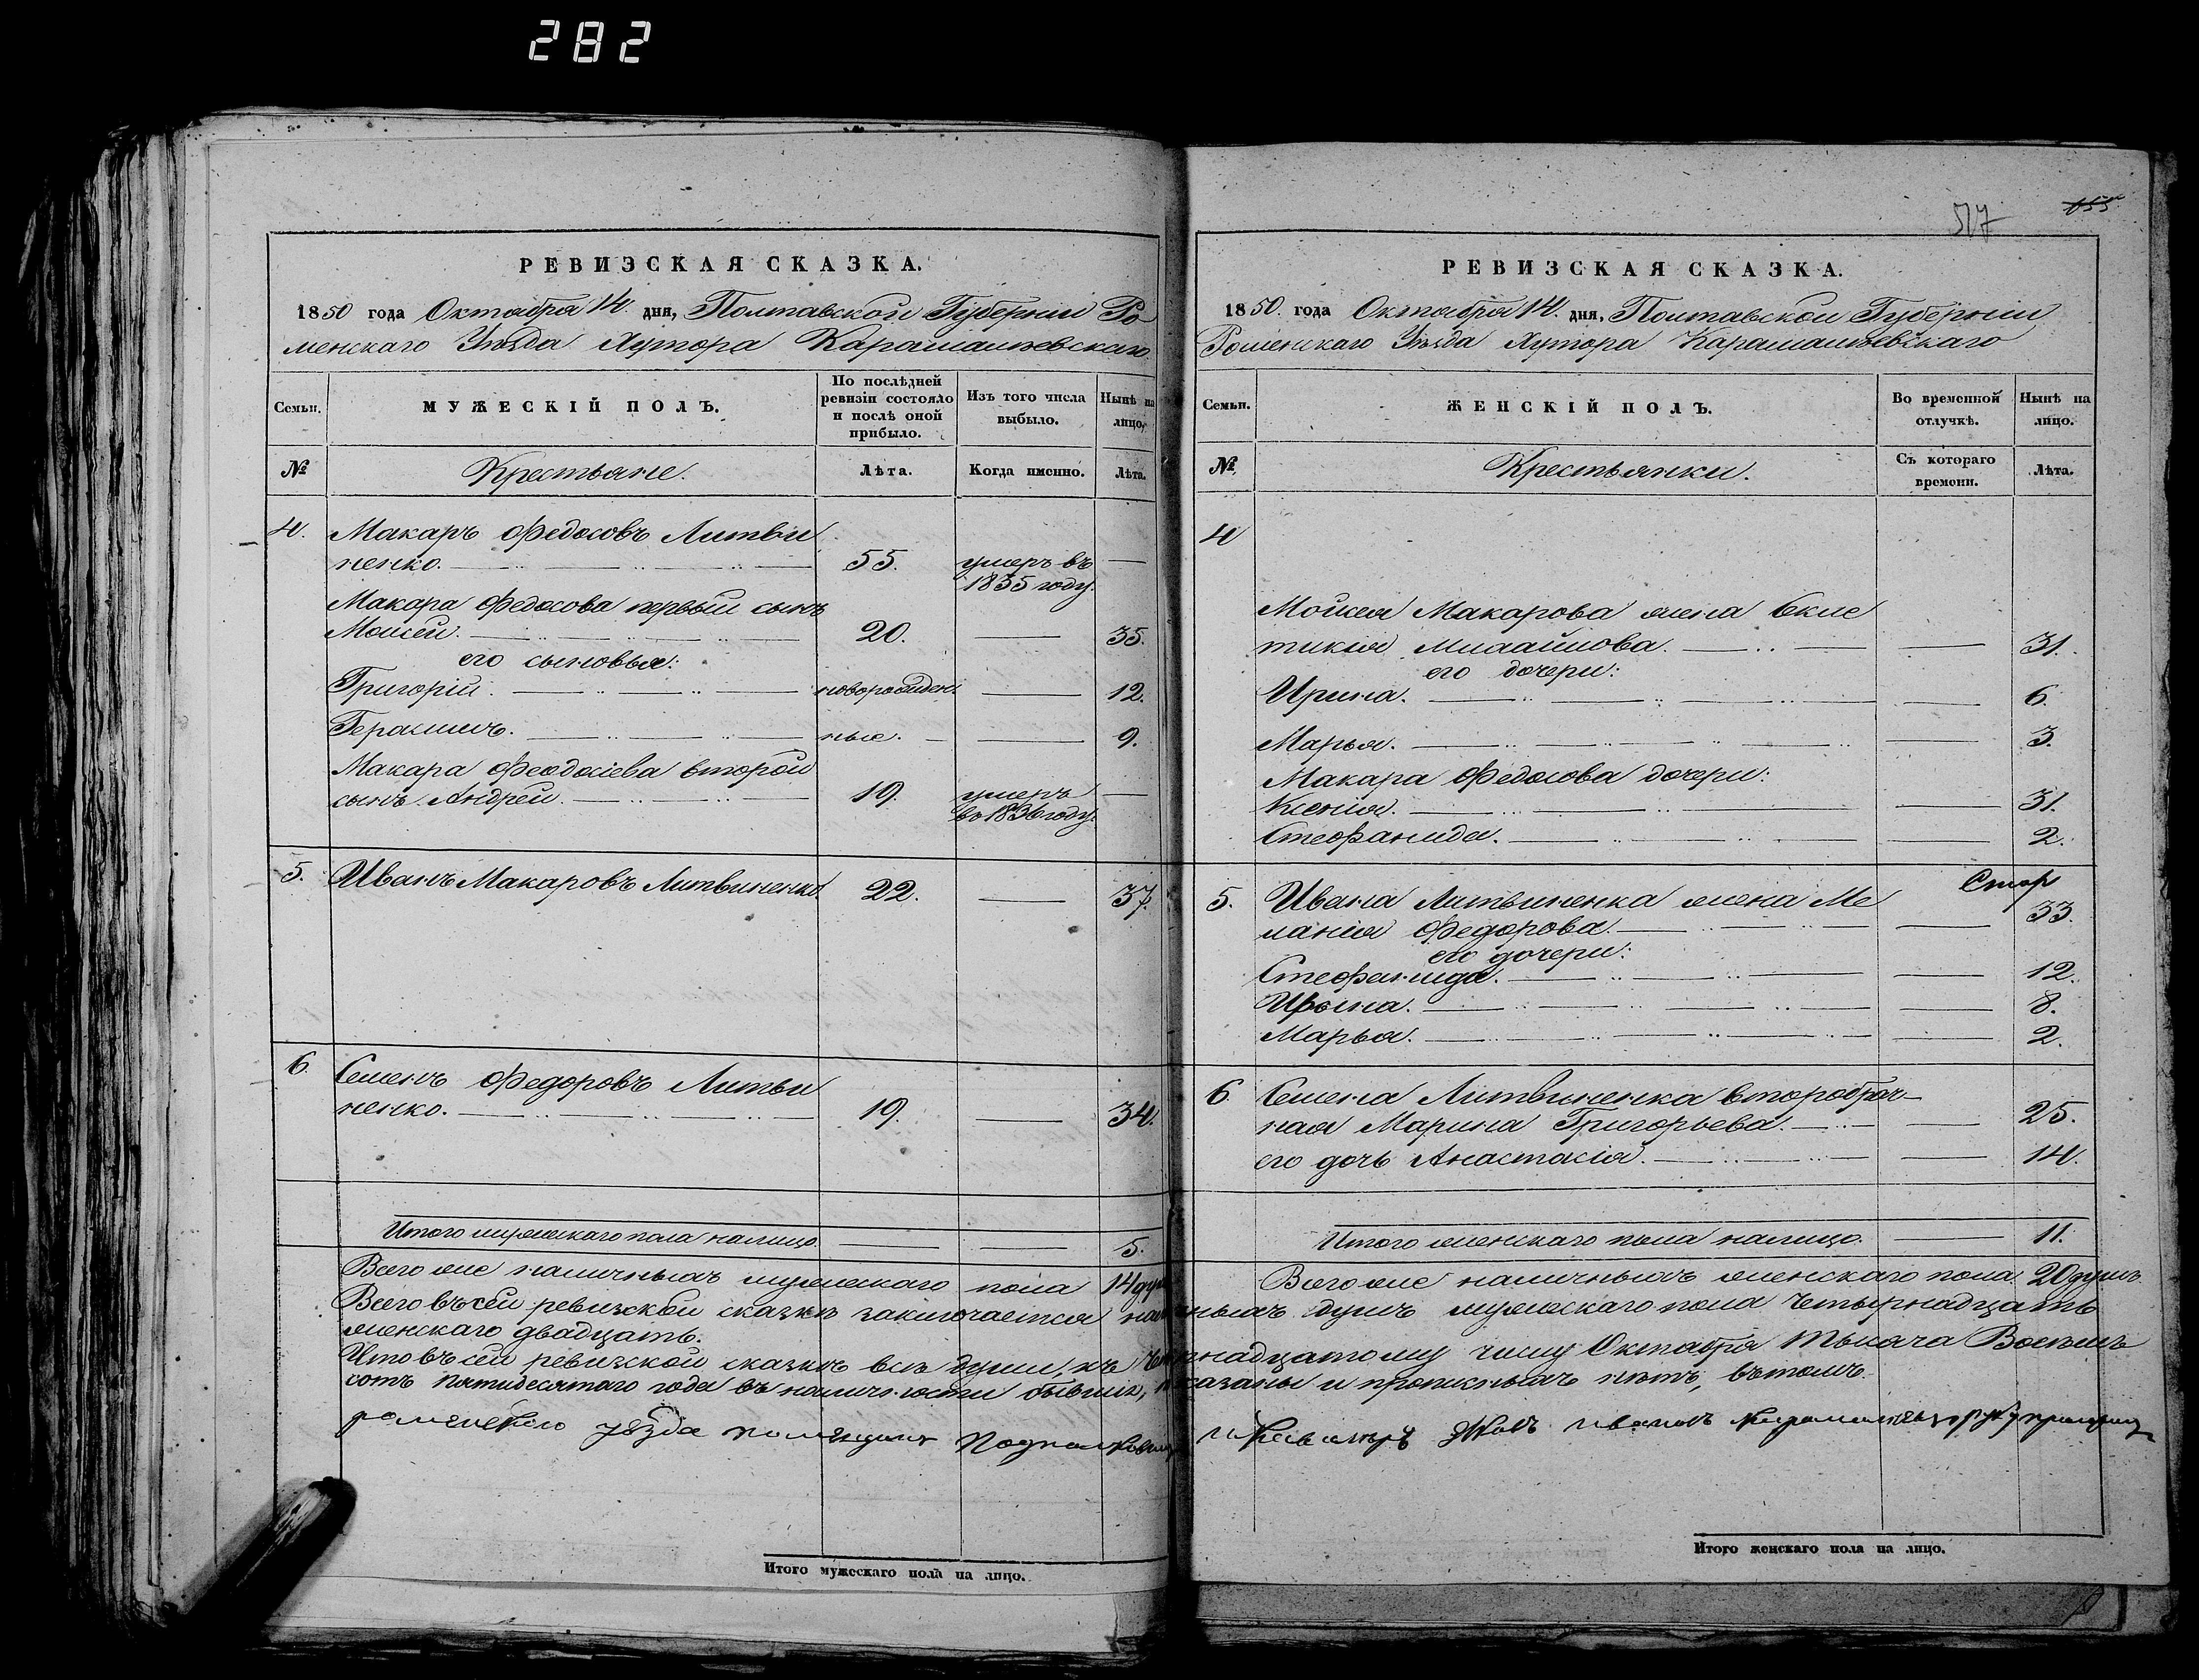 282
517
155
РЕВИЗСКАЯ СКАЗКА.
1850 года Октября 14. дня, Полтавской Губернии Ро-
менскаго Уѣзда Хутора Карамалѣевскаго
Семьи.
МУЖЕСКІЙ ПОЛЪ.
По послѣдней
ревизіи состояло
и послѣ оной
прибыло.
Изъ того числа
выбыло.
Нынѣ на
лицо.
№
Крестьяне.
Лѣта.
Когда именно.
Лѣта.
4. Макаръ Федосовъ Литви
ненко. 55. умеръ въ
1835 году.
Макара Федосова первый сынъ
Моисей. 20. 35.
его сыновья:
Григорій. новорожден. 12.
Герасимъ. ные. 9.
Макара Феодосіева второй
сынъ Андрей. 19. умеръ
во 1836 году.
5. Иванъ Макаровъ Литвиненко. 22. 37.
6. Семенъ Федоровъ Литви
ненко. 19. 34.
Итого мужескаго пола налицо. 5.
Всего же наличныхъ мужескаго пола 14 душ
РЕВИЗСКАЯ СКАЗКА.
1850. года Октября 14. дня, Полтавской Губерніи
Роменскаго Уѣзда Хутора Карамалѣевскаго
Семьи.
ЖЕНСКІЙ ПОЛЪ.
Во временной
отлучкѣ.
Нынѣ на
лицо.
№
Крестьянки.
Съ котораго
времени.
Лѣта.
4
Мойсея Макарова жена Екле
тикія 31.
его дочери:
Ирина. 6.
Марья. 3.
Макара Федосова дочери:
Ксенія. 31.
Стефанида. 2.
5. Ивана Литвиненка жена Ме
ланія Федорова. 33.
его дочери:
Стефанида. 12.
Ирина. 8.
Марья. 2.
6. Семена Литвиненка второбрач-
ная Марина Григорьева. 25.
его дочь Анастасія. 14.
Итого женскаго пола налицо. 11.
Всего же наличныхъ женскаго пола 20 душъ.
Всего въ сей ревизской сказкѣ заключается наличныхъ душъ мужескаго пола четырнадцать
женскаго двадцать.
Что въ сей ревизской сказкѣ всѣ души, къ четырнадцатому числу Октября Тысяча Восемь
сотъ пятидесятаго года въ наличности бывшіе, показаны и прописныхъ нѣтъ, въ томъ
роменского уѣзда помещикъ Подполковникъ и Кавалеръ ивановъ
Итого мужескаго пола на лицо.
Итого женскаго пола на лицо.